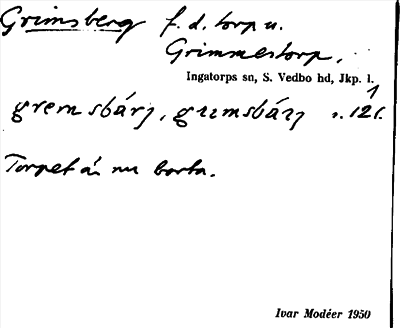 Grimsberg f. d. torp u.
Grimmestorp.
Ingatorps sn, S. Vedbo hd, Jkp. l.
gremsbárj, grimsbárj 1. 121.
Torpet är nu borta.
Ivar Modéer 1950